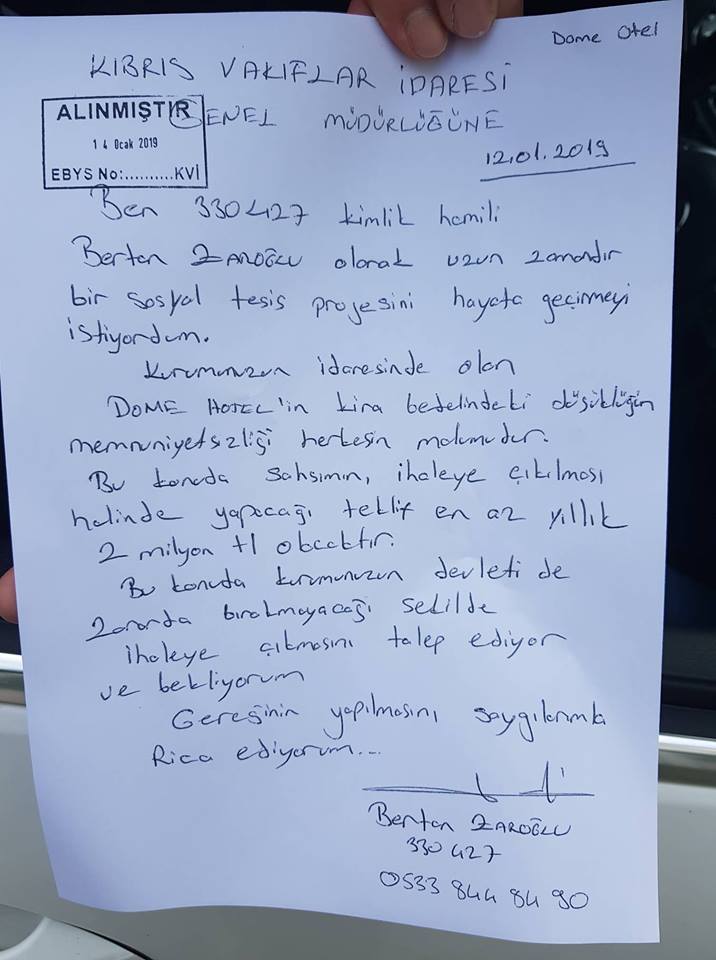 Dome Otel
KIBRIS VAKIFLAR İDARESİ
GENEL MÜDÜRLÜĞÜNE
ALINMIŞTIR
14 Ocak 2019
EBYS No:..........KVİ
12.01.2019
Ben 330427 kimlik hamili
Bertan ZAROĞLU olarak uzun zamandır
bir sosyal tesis projesini hayata geçirmeyi
istiyordum.
Kurumunuzun idaresinde olan
DOME HOTEL'in kira bedelindeki düşüklüğün
memnuniyetsizliği herkesin malumudur.
Bu konuda şahsımın, ihaleye çıkılması
halinde yapacağı teklif en az yıllık
2 milyon tl olacaktır.
Bu konuda kurumunuzun devleti de
zararda bırakmayacağı şekilde
ihaleye çıkmasını talep ediyor
ve bekliyorum
Gereğinin yapılmasını saygılarımla
Rica ediyorum...
Bertan ZAROĞLU
330427
0533 844 84 90